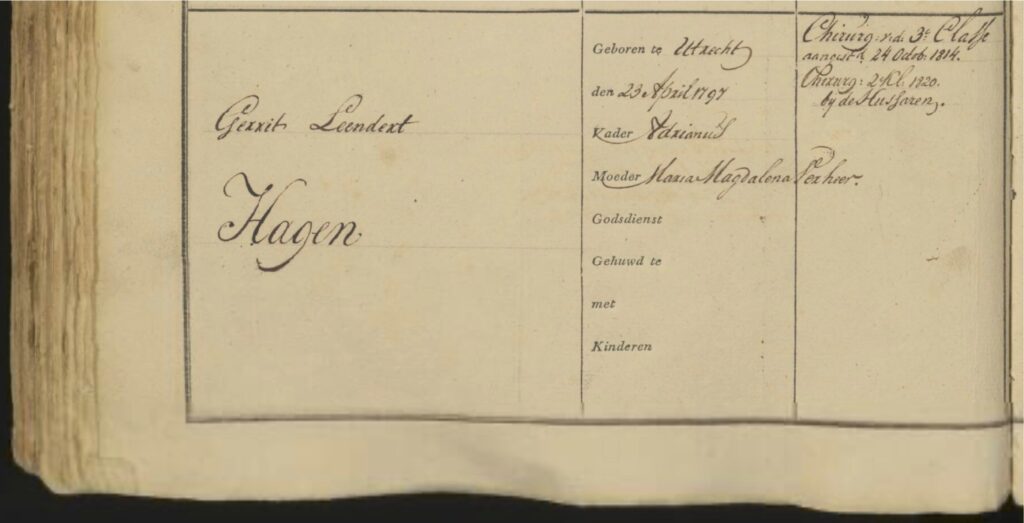 Gerrit Leendert
Hagen
Geboren te Utrecht
den 23 April 1797
Vader Adrianus
Moeder Maria Magdalena Verheer.
Godsdienst
Gehuwd te
met
Kinderen
Chirurg: v.d. 3e Classe
24 Octob: 1814.
Chirurg: 2e Kl. 1820.
by de Hussaren.